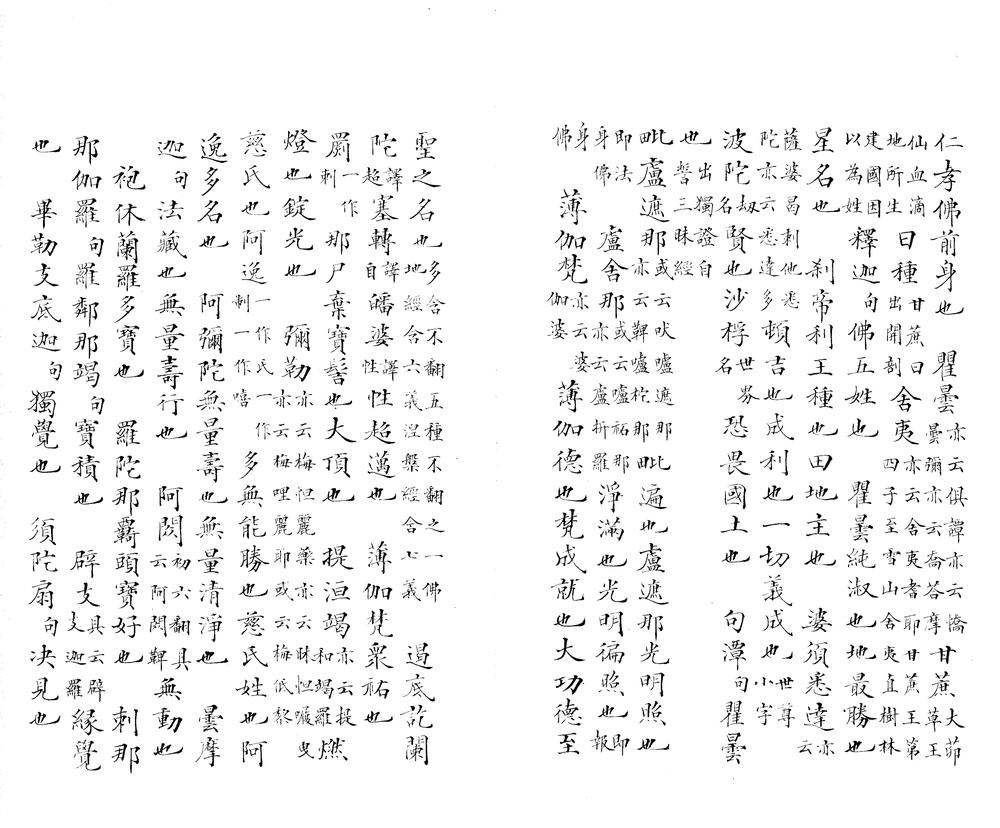 仁孝佛前身也　瞿曇亦云俱譚亦云憍曇彌亦云喬答摩甘蔗大茆草王
仙血滴地所生日種甘蔗曰出開剖舍夷亦云舍夷者耶甘蔗王第四子至雪山舍夷直樹林
建國因以為姓釋迦句佛五姓也　瞿曇純淑也地最勝也
星名也　剎帝利王種也田地主也　婆須悉達亦云
薩婆曷剌他悉陀亦云悉達多頓吉也成利也一切義成也世尊小字
波陀劫名賢也沙桴世界名恐畏國土也　句潭句瞿曇
也出獨證自誓三昧經
毗盧遮那或云吠嚧遮那亦云鞞嚧柁那毗遍也盧遮那光明照也
即法身佛盧舍那或云嚧祐那亦云盧折羅淨滿也光明徧照也即報
身佛　薄伽梵亦云婆伽婆薄伽德也梵成就也大功德至
聖之名也多含不翻五種不翻之一佛地經含六義涅槃經含七義過底訖蘭
陀譯超塞轉譯自皤婆譯性性超邁也　薄伽梵衆祐也
罽一作剌那尸棄寶髻也大頂也　提洹竭亦云提和竭羅燃
燈也錠光也　彌勒亦云梅怛麗藥亦云昧怛曳亦云梅哩麗耶或云梅低黎
慈氏也阿逸一作氏一作制一作嘻多無能勝也慈氏姓也阿
逸多名也　阿彌陀無量壽也無量清淨也　曇摩
迦句法藏也無量壽行也　阿閦初六翻具云阿閦鞞無動也
袍休蘭羅多寶也　羅陀那頭寶好也　剌那
那伽羅句羅鄰那竭句寶積也　辟支具云辟支迦羅緣覺
也　畢勒支底迦句獨覺也　須陀扇句决見也